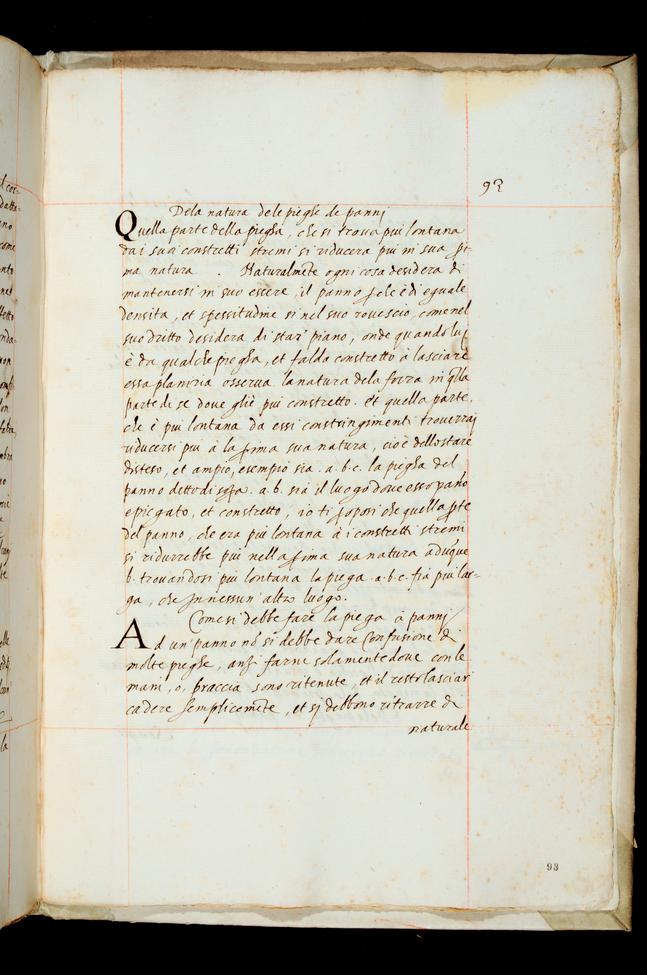 93
Dela natura dele pieghe de pannj
Quella parte della piegha, che si trova piu lontana
da i suoi constretti stremi si riducera piu in sua pri
ma natura . Naturalmēte ogni cosa desidera di
mantenersi in suo essere, il panno pche è di eguale
densita, et spessitudine si nel suo rouescio, come nel
suo dritto desidera di star piano, onde quando luj
è da qualche piegha, et falda constretto à lasciare
essa planitia osserua la natura dela forza in qlla
parte di se doue gliè piu constretto. et quella parte
che è piu lontana da essi constringimenti trouerraj
riducersi piu à la pima sua natura, cioè dello stare
disteso, et ampio, esempio sia .a.b.c. la piegha del
panno detto di sopa .a.b. sia il luogo doue esso pano
è piegato, et constretto, io ti pposi che quella pte
del panno, che era piu lontana à i constretti stremi
si ridurrebbe piu nella pima sua natura adūque
b. trouandosi piu lontana la piega .a.b.c. fia piu lar-
ga, che in nessun' altro luogo.
Come si debbe fare la piega à pannj
Ad un' panno nō si debbe dare Confusione di
molte pieghe, anzi farne solamente doue con le
mani, o, braccia sono ritenute, et il resto lasciar
cadere semplicemēte, et sj debbono ritrarre di
naturale
93